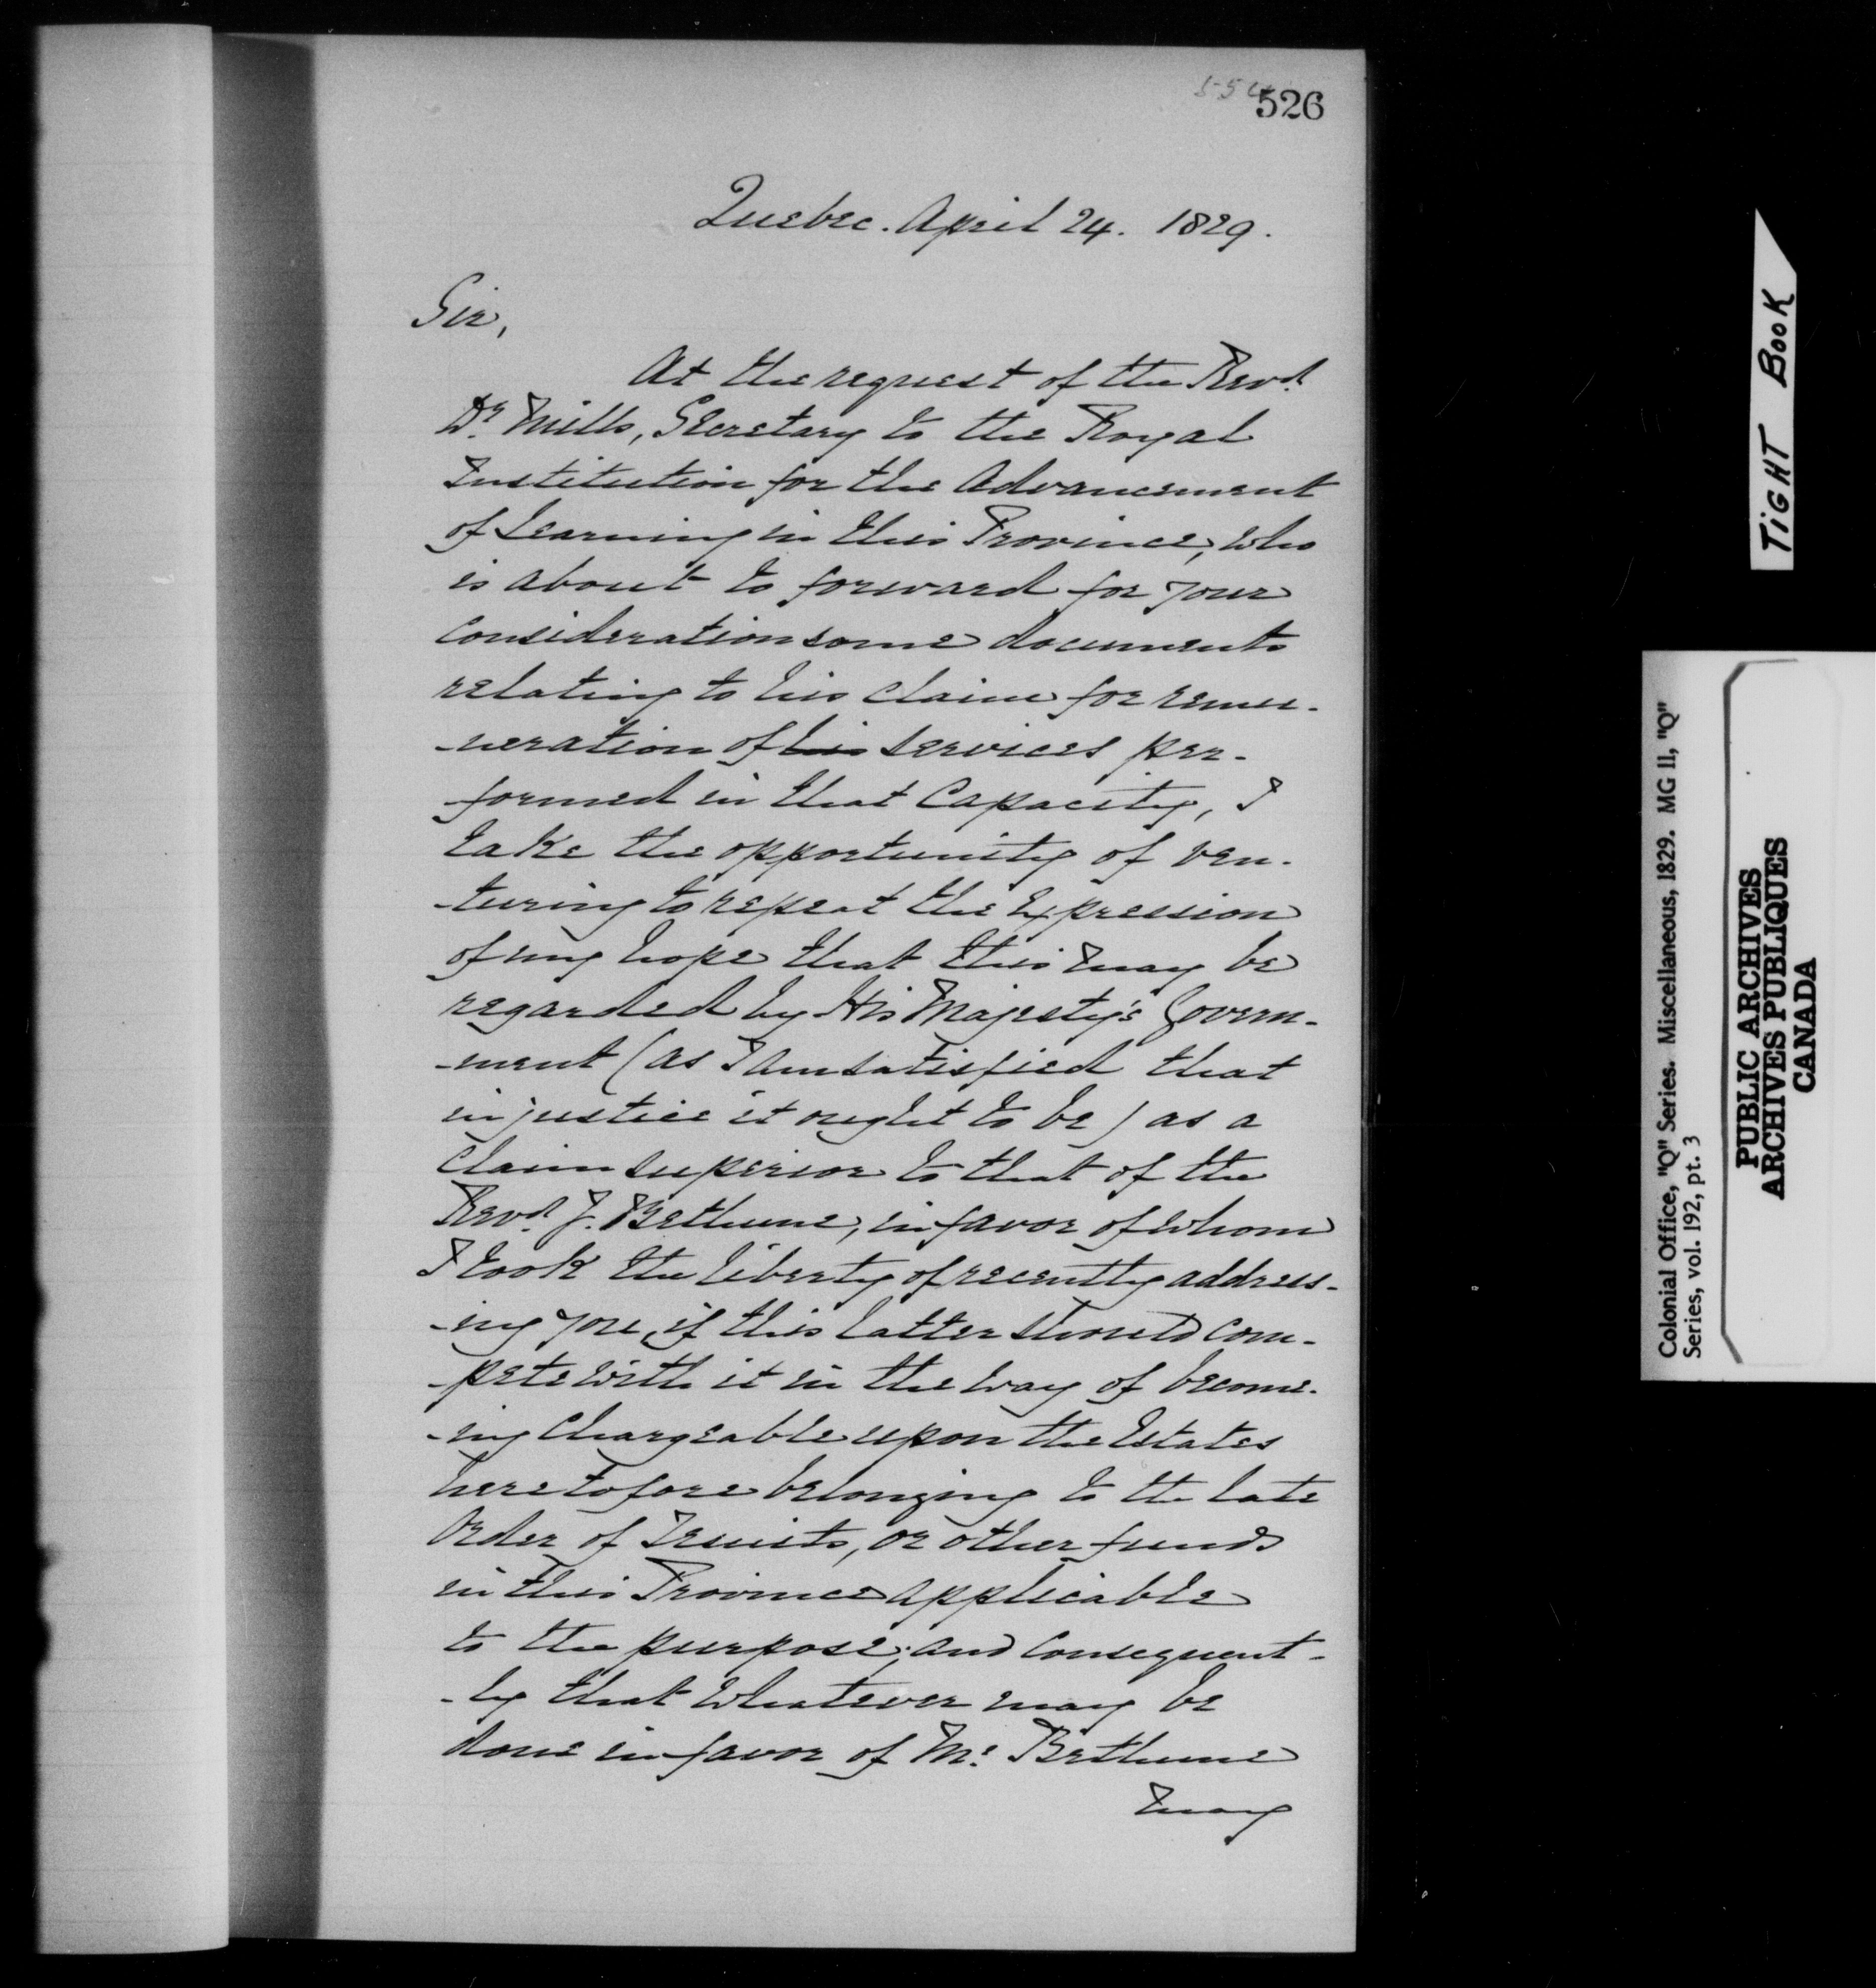 526
Quebec. April 24. 1829.
Sir,
At the request of the Revd.
Dr. Mills, Secretary to the Royal
Institution for the Advancement
of Learning in this Province, who
is about to forward for your
consideration some documents
relating to his claim for remu-
-neration of his services per-
-formed in that Capacity, I
take the opportunity of ven-
-turing to repeat the Expression
of my hope that this may be
regarded by His Majesty's Govern-
-ment (as I am satisfied that
in justice it ought to be) as a
claim superior to that of the
Revd. J. Bethune, in favor of whom
I took the liberty of recently address-
-ing you, if this latter should com-
-pete with it in the way of becom-
-ing Chargeable upon the Estates
heretofore belonging to the late
Order of Jesuits, or other funds
in this Province applicable
to the purpose; and consequent-
-ly that whatever may be
done in favor of Mr. Bethune
may
TIGHT BOOK
Colonial Office, "Q" Series. Miscellaneous, 1829. MG 11, "Q"
Series, vol. 192, pt. 3
PUBLIC ARCHIVES
ARCHIVES PUBLIQUES
CANADA